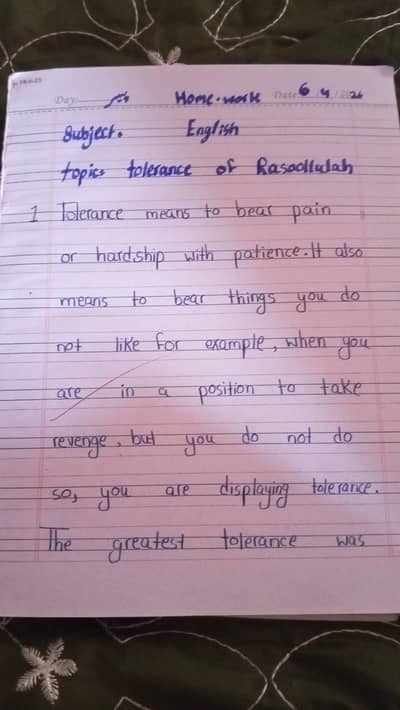 Day: Home-work Date: 6 4 / 2026
Subject. English
topic: tolerance of Rasoollulah
1 Tolerance means to bear pain
or hardship with patience. It also
means to bear things you do
not like for example, when you
are in a position to take
revenge, but you do not do
so, you are displaying tolerance.
The greatest tolerance was